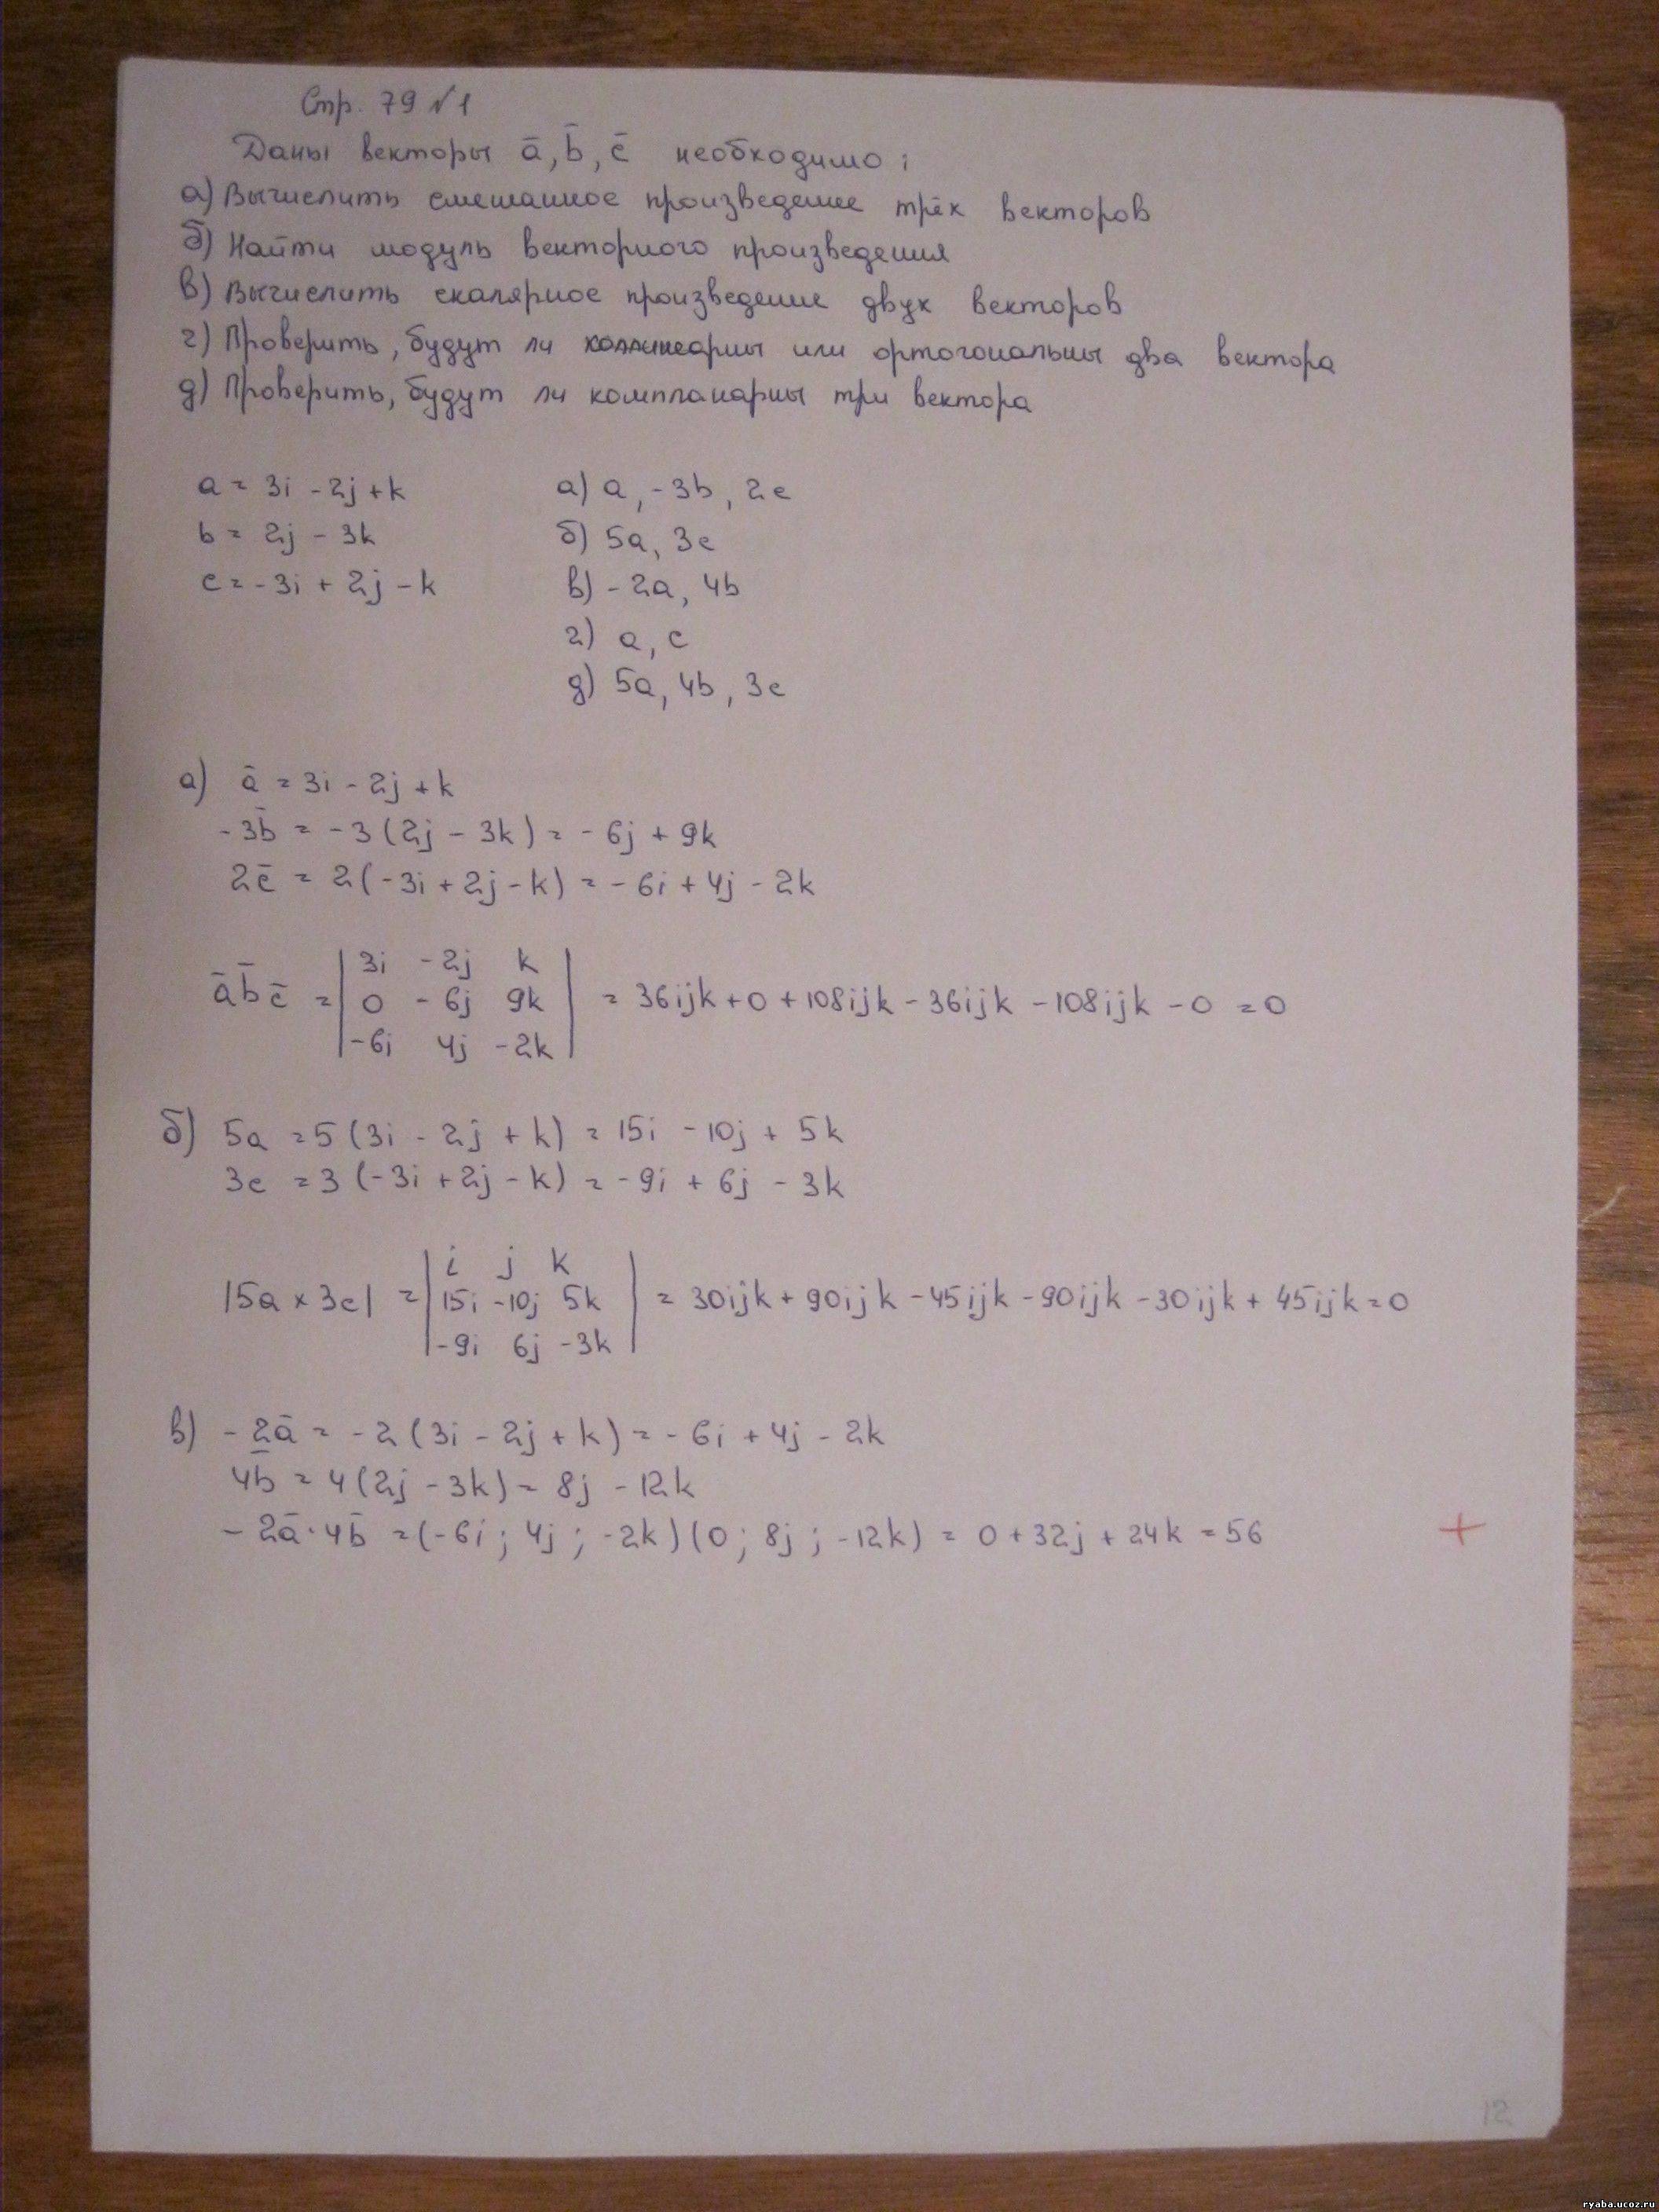 Стр. 79 №1
Даны векторы ā, b̄, c̄ необходимо:
а) Вычислить смешанное произведение трёх векторов
б) Найти модуль векторного произведения
в) Вычислить скалярное произведение двух векторов
г) Проверить, будут ли коллинеарны или ортогональны два вектора
д) Проверить, будут ли компланарны три вектора
a = 3i - 2j + k а) a, -3b, 2c
b = 2j - 3k б) 5a, 3c
c = -3i + 2j - k в) -2a, 4b
г) a, c
д) 5a, 4b, 3c
а) ā = 3i - 2j + k
-3b̄ = -3(2j - 3k) = -6j + 9k
2c̄ = 2(-3i + 2j - k) = -6i + 4j - 2k
3i -2j k
ā b̄ c̄ = | 0 -6j 9k | = 36ijk + 0 + 108ijk - 36ijk - 108ijk - 0 = 0
-6i 4j -2k
б) 5a = 5(3i - 2j + k) = 15i - 10j + 5k
3c = 3(-3i + 2j - k) = -9i + 6j - 3k
i j k
|5a × 3c| = | 15i -10j 5k | = 30ijk + 90ijk - 45ijk - 90ijk - 30ijk + 45ijk = 0
-9i 6j -3k
в) -2ā = -2(3i - 2j + k) = -6i + 4j - 2k
4b̄ = 4(2j - 3k) = 8j - 12k
-2ā · 4b̄ = (-6i; 4j; -2k)(0; 8j; -12k) = 0 + 32j + 24k = 56 +
12
ryaba.ucoz.ru